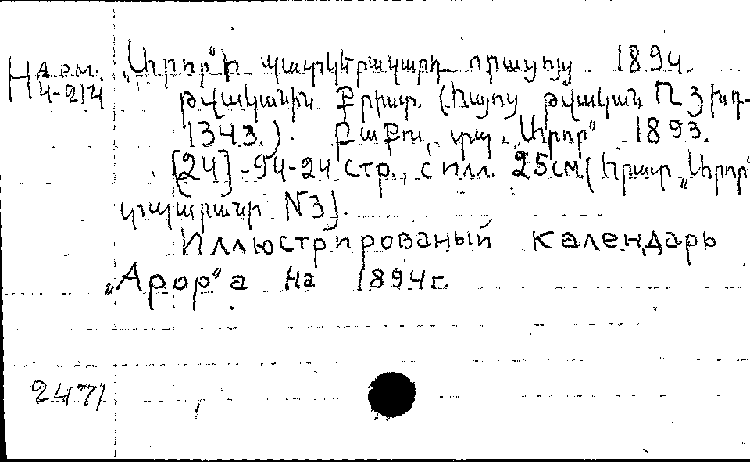 На арм.
4-214
„Արօր“ի պատկերազարդ օրացոյց 1894
թվականին Քրիստ. (Հայոց թվական ՌՅխգ-
1343.). Բաքու, տպ. „Արօր“ 1893.
[24]-94-24 стр., с илл. 25см (Հրատ „Արօր“
տպարանի N3).
Иллюстрированый календарь
„Арор“а на 1894г.
2471